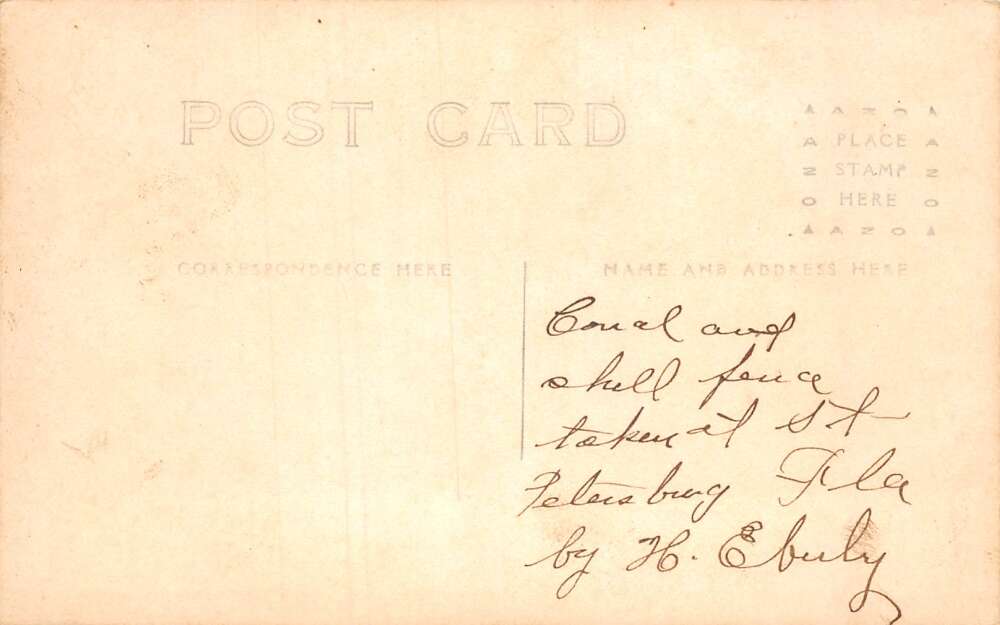 POST CARD
▲ A Z O ▲
A PLACE A
Z STAMP Z
O HERE O
▲ A Z O ▲
CORRESPONDENCE HERE
NAME AND ADDRESS HERE
Coral and
shell fence
taken at St
Petersburg Fla
by H. Eberly